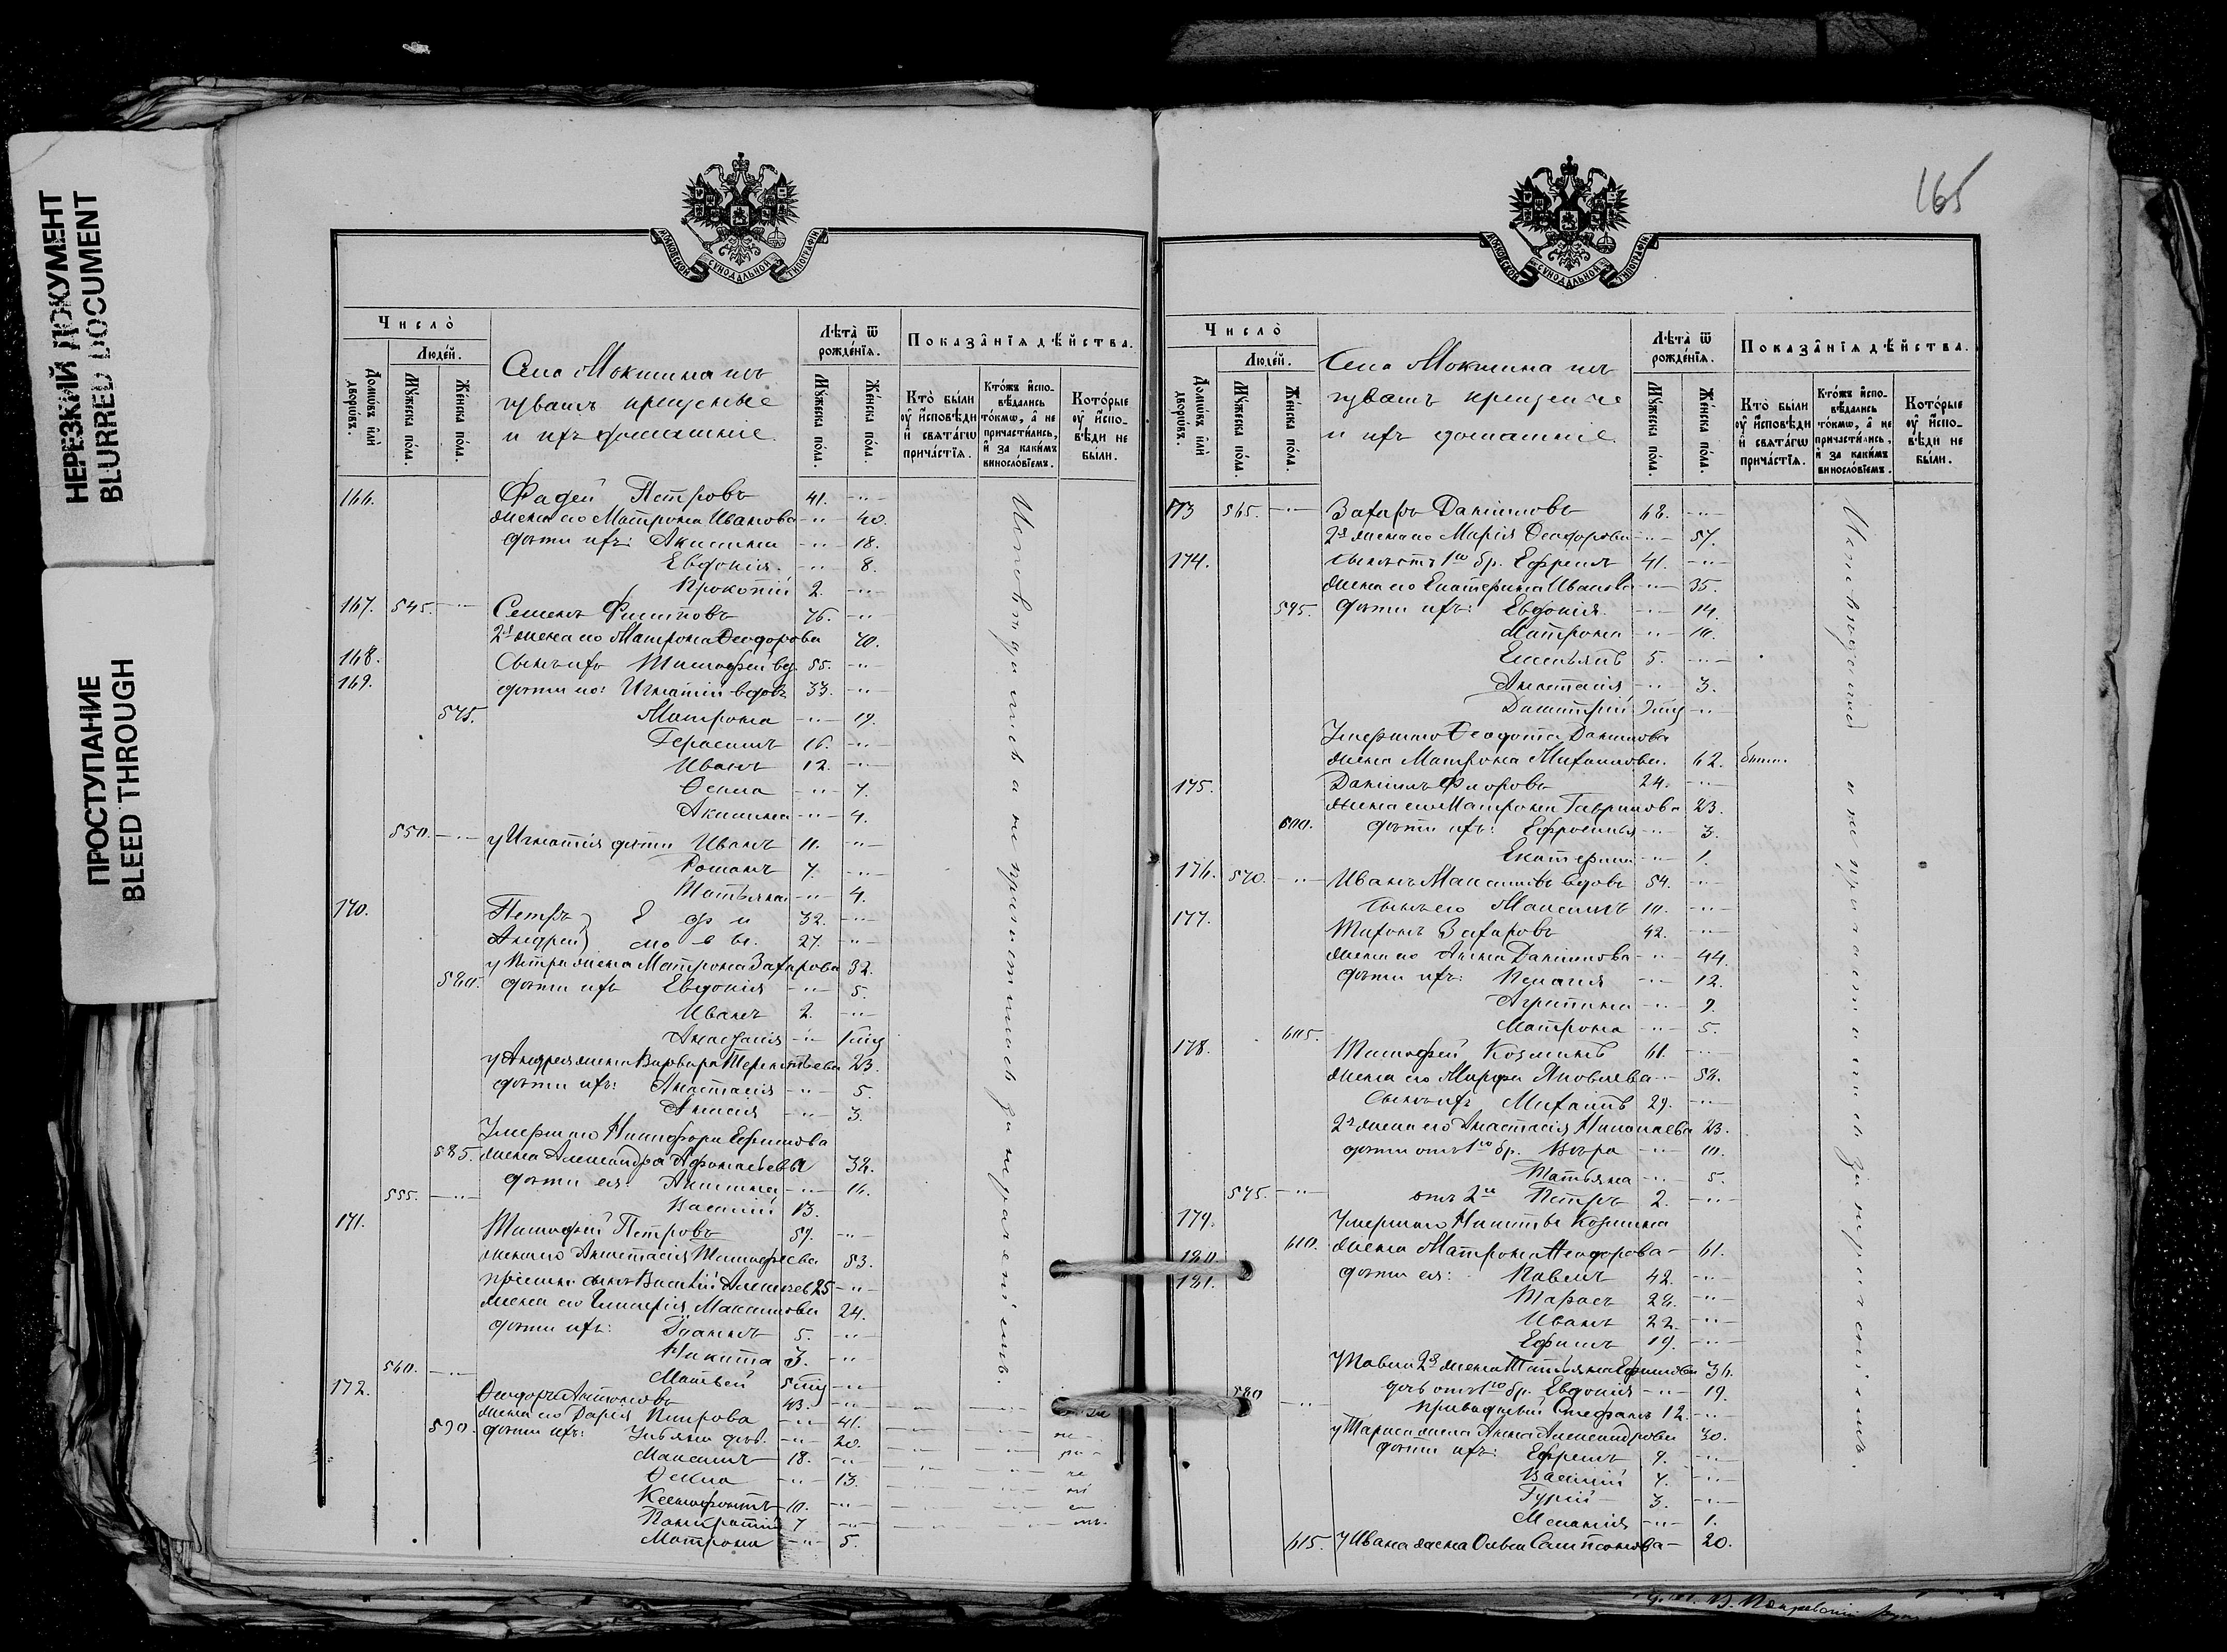 НЕРЕЗКИЙ ДОКУМЕНТ
BLURRED DOCUMENT
ПРОСТУПАНИЕ
BLEED THROUGH
МОСКОВСКОЙ СѴНОДАЛЬНОЙ ТИПОГРАФІИ
Число̀
Людéй.
Домѡ́въ и҆лѝ дворѡ́въ.
Мꙋ́жеска по́ла.
Же́нска по́ла.
Село Мокшина изъ
чувашъ крещеные
и ихъ домашніе
Лѣта̀ ѿ рождéнїѧ.
Мꙋ́жеска по́ла.
Же́нска по́ла.
Показа̑нїѧ дѣ́йства.
Кто̀ бы́ли оу҆ и҆сповѣ́ди и҆ свѧта́гѡ прича́стїѧ.
Кто́жъ и҆спо-вѣ́дались то́кмѡ, а҆ не причасти́лись, и҆ за каки́мъ винослóвїемъ.
Кото́рые оу҆ и҆спо-вѣ́ди не бы́ли.
166. Фадей Петровъ 41. -"-
жена его Матрона Иванова -"- 40.
дѣти ихъ: Акилина -"- 18.
Евдокія -"- 8.
Прокопій 2. -"-
167. 545. -"- Семенъ Филиповъ 76. -"-
2я жена его Матрона Ѳеодорова 70.
168. Сынъ ихъ Тимофей вд. 55. -"-
169. дѣти его: Игнатій вдовъ 33. -"-
575. Матрона -"- 19.
Герасимъ 16. -"-
Иванъ 12. -"-
Ѳекла -"- 7.
Акилина -"- 4.
550. -"- у Игнатія дѣти Иванъ 11. -"-
Романъ 7. -"-
Татьяна -"- 4.
170. Петръ } Е фи 32. -"-
Андрей } мо вы. 27. -"-
у Петра жена Матрона Захарова 32.
580. дѣти ихъ Евдокія -"- 5.
Иванъ 2. -"-
Анастасія -"-
у Андрея жена Варвара Терентьева 23.
дѣти ихъ: Анастасія -"- 5.
Анисія -"- 3.
Умершаго Никифора Ефимова
585. жена Александра Афонасьева 38.
дѣти ея: Акилина -"- 16.
555. -"- Василій 13.
171. Тимофей Петровъ 59. -"-
жена его Анастасія Тимофеева 53.
пріемн. сынъ Василій Алексѣев 25 -"-
жена его Гликерія Максимова 24.
дѣти ихъ: Іоаннъ 5. -"-
Никита 3. -"-
560. -"- Матвей -"-
172. Ѳеодоръ Антоновъ 43. -"-
жена его Дарія Петрова -"- 41.
590. дѣти ихъ: Ульяна дѣв. -"- 20.
Максимъ 18. -"-
Ѳекла -"- 13.
Ксенофонтъ 10. -"-
Панкратій 7 -"-
Матрона -"- 5.
Исповѣдались а не причастились за нераченіемъ.
165
МОСКОВСКОЙ СѴНОДАЛЬНОЙ ТИПОГРАФІИ
Число̀
Людéй.
Домѡ́въ и҆лѝ дворѡ́въ.
Мꙋ́жеска по́ла.
Же́нска по́ла.
Село Мокшина изъ
чувашъ крещеные
и ихъ домашніе
Лѣта̀ ѿ рождéнїѧ.
Мꙋ́жеска по́ла.
Же́нска по́ла.
Показа̑нїѧ дѣ́йства.
Кто̀ бы́ли оу҆ и҆сповѣ́ди и҆ свѧта́гѡ прича́стїѧ.
Кто́жъ и҆спо-вѣ́дались то́кмѡ, а҆ не причасти́лись, и҆ за каки́мъ винослóвїемъ.
Кото́рые оу҆ и҆спо-вѣ́ди не бы́ли.
173 565. -"- Захаръ Даниловъ 68. -"-
2я жена его Марія Ѳеодорова -"- 57.
174. сынъ отъ 1го бр. Ефремъ 41. -"-
жена его Екатерина Иванова -"- 35.
595. дѣти ихъ: Евдокія -"- 14.
Матрона -"- 10.
Емельянъ 5. -"-
Анастасія -"- 3.
Димитрій -"-
Умершаго Ѳеодота Данилова
жена Матрона Михаилова. 62. были.
175. Даніилъ Флоровъ 24. -"-
жена его Матрона Гаврилова 23.
600. дѣти ихъ: Ефросинья -"- 3.
Екатерина -"- 1.
176. 570. -"- Иванъ Максимовъ вдовъ 54. -"-
сынъ его Максимъ 10. -"-
177. Тихонъ Захаровъ 42. -"-
жена его Анна Данилова -"- 44.
дѣти ихъ: Пелагія -"- 12.
Агрипина -"- 9.
605. Матрона -"- 5.
178. Тимофей Козминъ 61. -"-
жена его Марфа Яковлева -"- 58.
Сынъ ихъ Михаилъ 29. -"-
2я жена его Анастасія Николаева 23.
дѣти отъ 1го бр. Вѣра -"- 10.
Татьяна -"- 5.
575. -"- отъ 2го Петръ 2. -"-
179. Умершаго Никиты Козмина
180 610. жена Матрона Ѳеодорова - 61.
181. дѣти ея: Павелъ 42. -"-
Тарасъ 28. -"-
Иванъ 22. -"-
Ефимъ 19. -"-
У Павла 2я жена Татьяна Ефимова 36.
580 дочь отъ 1го бр. Евдокія -"- 19.
-"- приводный Стефанъ 12. -"-
у Тараса жена Анна Александрова 30.
дѣти ихъ: Ефремъ 9. -"-
Василій 7. -"-
Гурій 3. -"-
Меланія -"- 1.
615. У Ивана жена Ольга Сампсонова - 20.
Исповѣдались а не причастились за нераченіемъ.